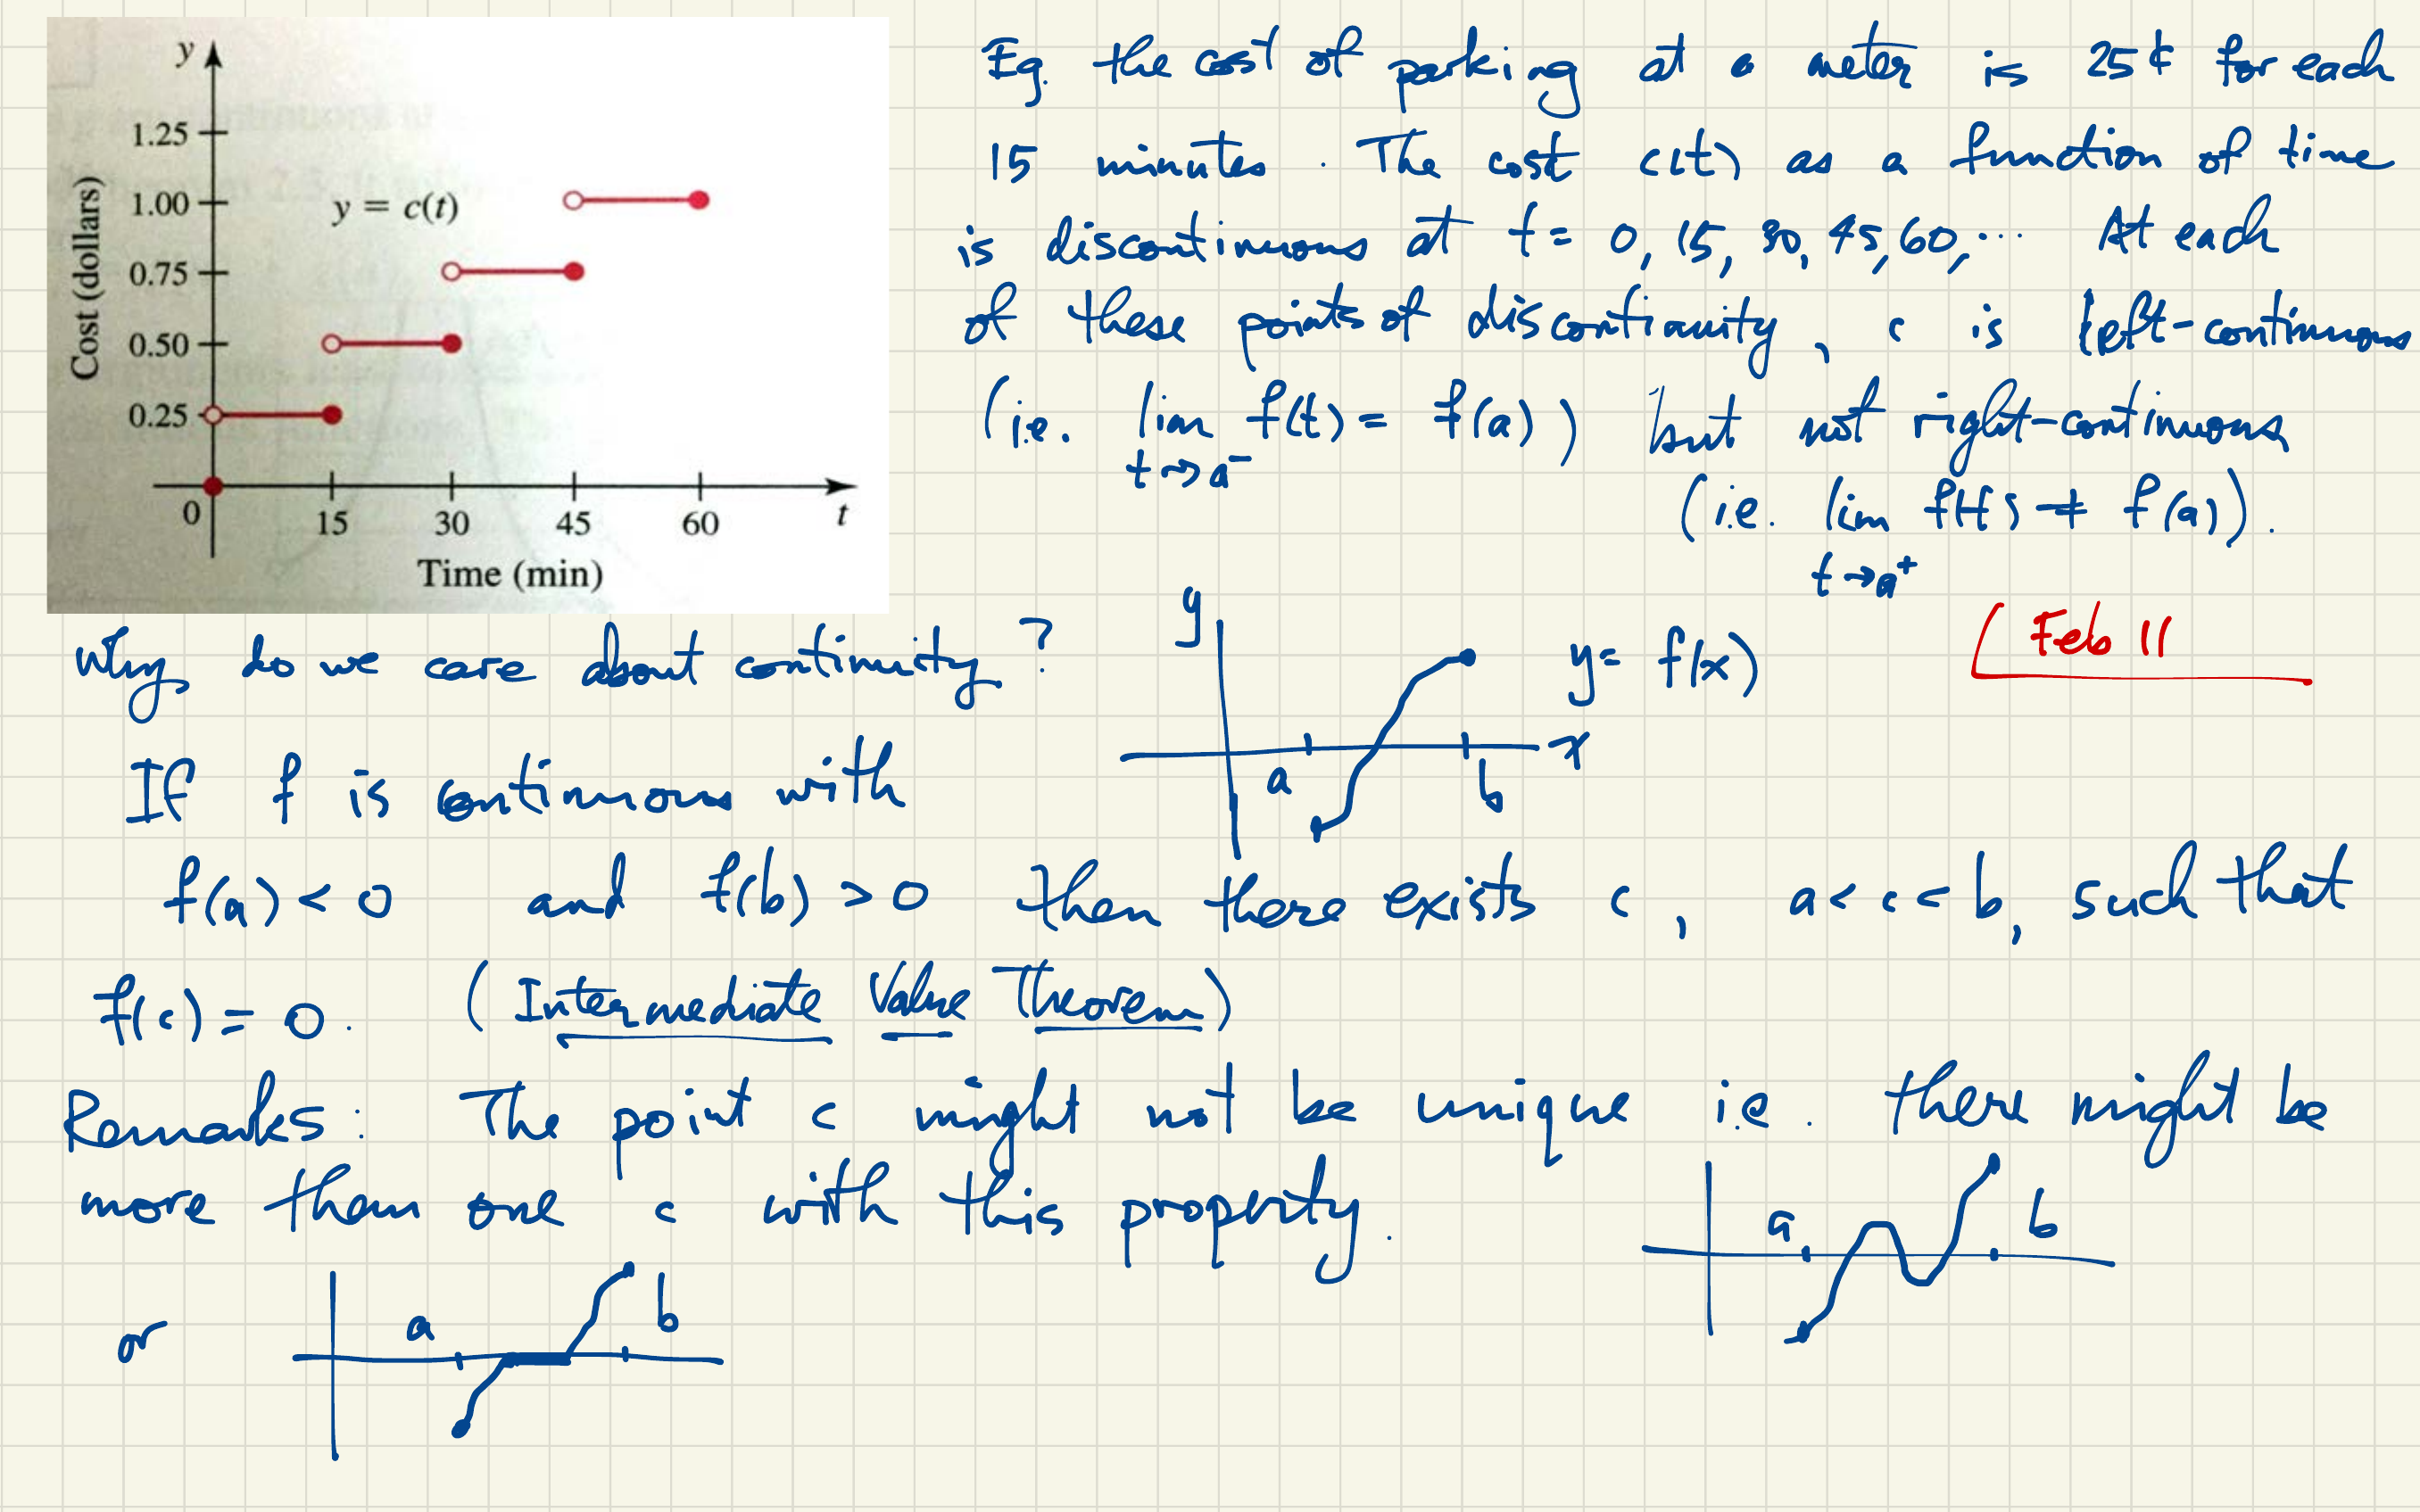 y
1.25
1.00
0.75
0.50
0.25
0
15 30 45 60 t
Cost (dollars)
y = c(t)
Time (min)
Eg. the cost of parking at a meter is 25¢ for each
15 minutes. The cost c(t) as a function of time
is discontinuous at t = 0, 15, 30, 45, 60, ... At each
of these points of discontinuity, c is left-continuous
(i.e. lim f(t) = f(a)) but not right-continuous
t→a⁻
(i.e. lim f(t) ≠ f(a)).
t→a⁺
Feb 11
Why do we care about continuity?
y
y = f(x)
x
a
b
If f is continuous with
f(a) < 0 and f(b) > 0 then there exists c, a < c < b, such that
f(c) = 0. (Intermediate Value Theorem)
Remarks: The point c might not be unique i.e. there might be
more than one c with this property.
a
b
or
a
b